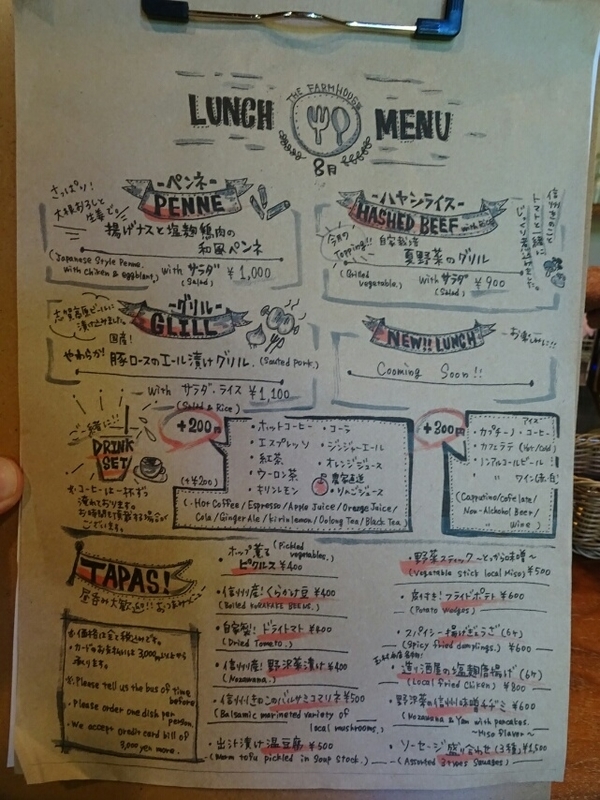 THE FARMHOUSE
LUNCH MENU
8月
-ペンネ-
PENNE
さっぱり!
大根おろしと
生姜で!
揚げナスと塩麹鶏肉の
和風ペンネ
(Japanese style Penne,
with chiken & eggplant)
with サラダ ¥1,000
(Salad)
-ハヤシライス-
HASHED BEEF with Rice
信州きのこと
トマトと一緒に
じっくり煮込みました。
今月の
Topping!!
自家栽培
夏野菜のグリル
(Grilled
vegetable.)
with サラダ ¥900
(Salad)
-グリル-
GLILL
志賀高原ビールに
漬け込みました。
国産!
やわらか! 豚ロースのエール漬けグリル. (Sauted pork.)
with サラダ・ライス ¥1,100
(Salad & Rice)
NEW!! LUNCH
-お楽しみに!!
Cooming Soon!!
ご一緒に!!
DRINK
SET
(+¥200)
※コーヒーは一杯ずつ
淹れております。
お時間を頂戴する場合が
ございます。
+200円
・ホットコーヒー ・コーラ
・エスプレッソ ・ジンジャーエール
・紅茶 ・オレンジジュース
・ウーロン茶 農家直送
・キリンレモン ・りんごジュース
(・Hot Coffee / Espresso / Apple Juice / Orange Juice /
Cola / Ginger Ale / kirin lemon / Oolong Tea / Black Tea)
+200円
アイス
・カプチーノ・コーヒー
・カフェラテ (Hot/Cold)
・ノンアルコールビール
〃 ワイン(赤・白)
(Cappucino/cafe late/
Non-Alchohol Beer/
〃 Wine)
TAPAS!
昼呑み大歓迎!! おつまみメニュー
※価格は全て税込みです。
・カードのお支払いは3,000円以上から
承ります。
※Please tell us the bus of time
before
・Please order one dish per
person.
・We accept credit card bill of
3,000 yen more.
・ホップ薫る (Pickled
vegetables.)
ピクルス ¥400
・信州産! くらかけ豆 ¥400
(Boiled KURAKAKE BEENS.)
・自家製! ドライトマト ¥400
(Dried Tometo.)
・信州産! 野沢菜漬け ¥400
(Nozawana.)
・信州きのこのバルサミコマリネ ¥500
(Balsamic marineted variety of
local mushrooms.)
・出汁漬け温豆腐 ¥500
(Warm tofu pickled in soup stock.)
・野菜スティック ～とうがらし味噌～
(Vegetable stick local Miso) ¥500
・皮付き! フライドポテト ¥600
(Potato wadges.)
・スパイシー揚げぎょうご (6ヶ)
(Spicy fried dumplings.) ¥600
・造り酒屋の塩麹唐揚げ (6ヶ)
(Local fried Chiken) ¥800
・野沢菜の信州味噌チヂミ ¥600
(Nozawana & Yam with pancakes.
～Miso flavor～)
・ソーセージ盛り合わせ (3種) ¥1,500
(Assorted 3types Sausages)